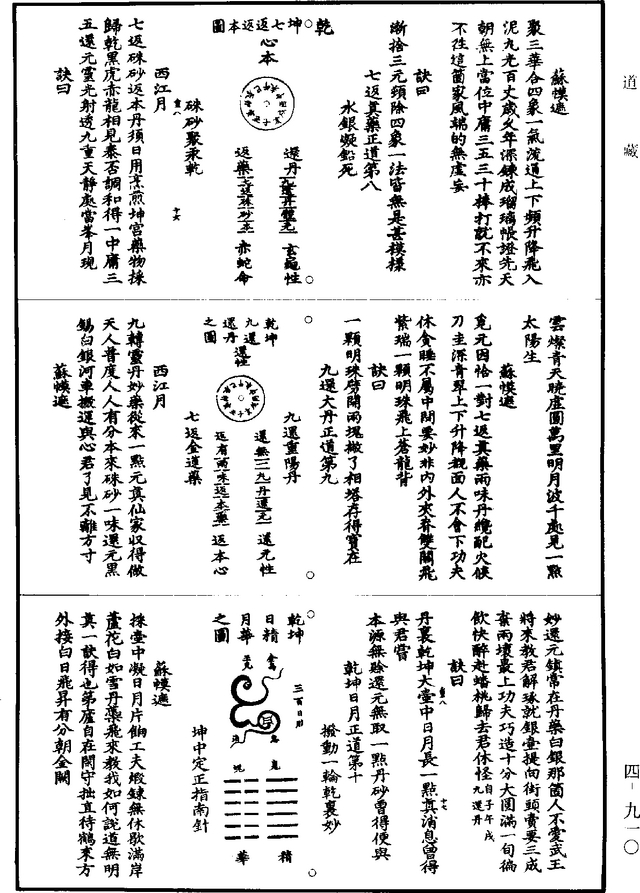 道藏
蘇幙遮
聚三華合四象一氣流通上下頻升降飛入
泥九光百丈歲久年深鍊成瑠璃帳證先天
朝無上當位中庸三五三十棒打說不來亦
不往這箇家風端的無虛妄
訣曰
漸捨三元頭除四象一法皆無是甚模樣
七返真藥正道第八
水銀凝鉛死
乾坤七返返本圖
心本
還丹
玄龜性
返藥
赤蛇命
硃砂聚汞乾
西江月
七返硃砂返本丹須日用烹煎坤宮藥物採
歸乾黑虎赤龍相見泰否調和得一中庸三
五還元靈光射透九重天靜處當峯月現
訣曰
雲燦青天曉虛圓萬里明月波千處見一點
太陽生
蘇幙遮
覓元因恰一對七返真藥兩味丹纔配火候
刀圭深青翠上下升降覿面人不會下功夫
休貪睡不屬中間要妙非內外夾脊雙關飛
紫瑞一顆明珠飛上蒼龍背
訣曰
一顆明珠劈開兩塊撇了相塔存得寶在
九還大丹正道第九
九還重陽丹
乾坤九還還丹之圖
還性
還無三九丹還元
還元性
返有兩味返本藥
返本心
七返金道藥
西江月
九轉靈丹妙藥從來一點元真仙家收得做
天人普度人人有分本來硃砂一味還元黑
錫白銀河車搬運與心君了見不離方寸
蘇幙遮
妙還元鎮常在丹藥白銀那箇人不愛武王
將來教君解琢就銀壺提向街頭賣要三成
棄兩壞最上功夫巧造十分大圓滿一旬徧
飲快醉赴蟠桃歸去君休怪自子午戌九還丹
訣曰
丹裏乾坤大壺中日月長一點真消息曾得
與君嘗
本源無賒還元無取一點丹砂曾得便與
乾坤日月正道第十
撥動一輪乾裏妙
乾坤日精月華之圖
三百日用
精
華
坤中定正指南針
蘇幙遮
採壺中凝日月片餉工夫煅鍊無休歇滿岸
蘆花白如雪丹藥飛來教我如何說道無明
真一訣得也第廬自在閑守拙直待鶴來方
外接白日飛昇有分朝金闕
四-九一〇